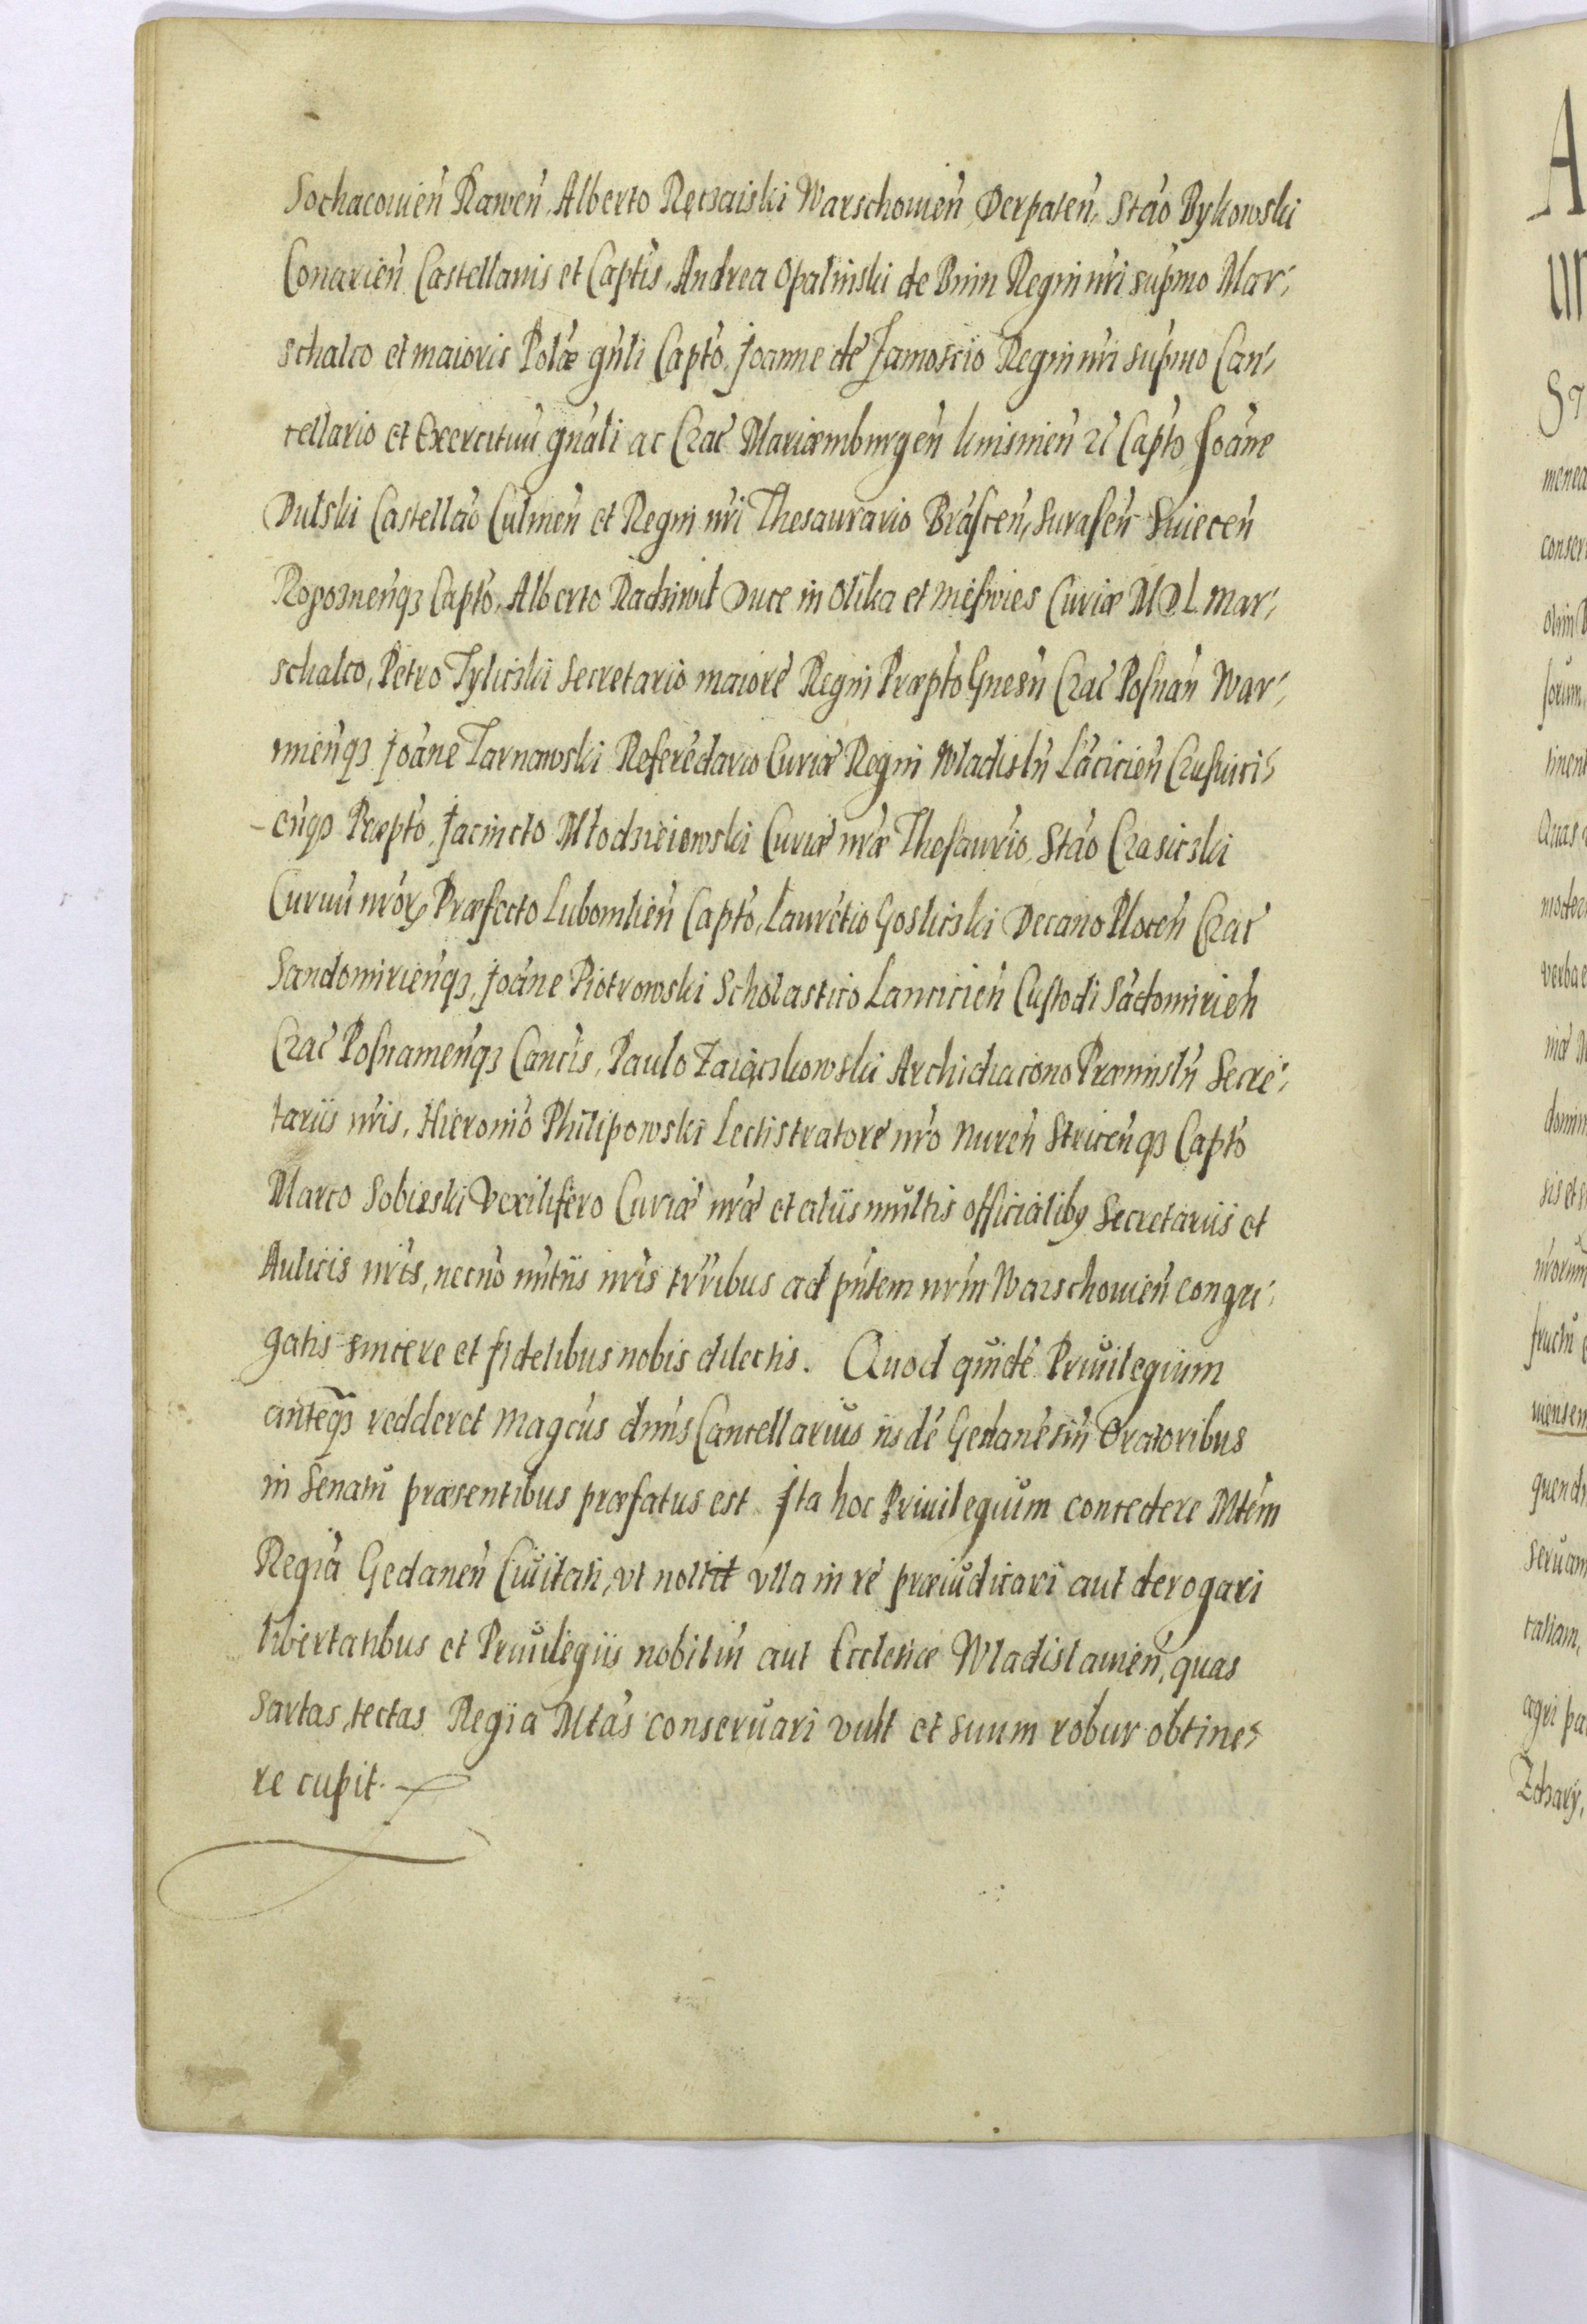 Sochacouień Raweń, Alberto Ręczaiski Warschouień Derpateń, Stáo Bykowski
Conarień Castellanis et Captis, Andrea Opalinski de Bnin Regni nri supmo Mar-
schalco et maioris Polæ gńli Capto, Joanne de Zamoscio Regni nri supmo Can-
cellario et Exercituú gnali ac Crac Mariæmburgeń knisnień zc Capto Joáne
Dulski Castelláo Culmeń et Regni nri Thesaurario Brásceń, Suraseń Suieceń
Rogoznenqз Capto, Alberto Radziwil Duce in Olika et nieswies Curiæ M D L Mar-
schalco, Petro Tylicski Secretario maiore Regni Præpto Gnesń Crac Posnań War-
mienqз Joáne Tarnowski Referédario Curiæ Regni Wladislń Lácicień Crusuici-
enqз Præpto, Jacincto Młodzieiowski Curiæ nræ Thesaurio, Stáo Czasicski
Curuú nroꝝ Præfecto Lubomlień Capto, Laurétio Goslicski Decano Ploceń Crac
Sandomirienqз, Joáne Piotrowski Scholastico Lancicień Custodi Sádomirień
Crac Posnanienqз Cancis, Paulo Zaiączkowski Archidiacono Præmislń Secre-
tariis nris, Hieronió Philipowski Lectistratore nro Nureń Stricenqз Capto
Marco Sobieski Vexilifero Curiæ nræ et aliis multis officialibꝰ Secretariis et
Aulicis nris, necnó nútiis nris trribus ad pńtem nrm Warschouień congre-
gatis sincere et fidelibus nobis dilectis. Quod quidé Priuilegium
anteqз redderet Magcus dnús Cancellarius iisdé Gedanésiú Oratoribus
in Senatu præsentibus præfatus est. Ita hoc Priuilegium concedere Mtem
Regiá Gedaneń Ciuitati, vt nollit vlla in ré præiudicari aut derogari
libertatibus et Priuilegiis nobiliú aut Ecclesiæ Wladislauień, quas
sartas, tectas Regia Mtas conseruari vult et suum robur obtine-
re cupit.